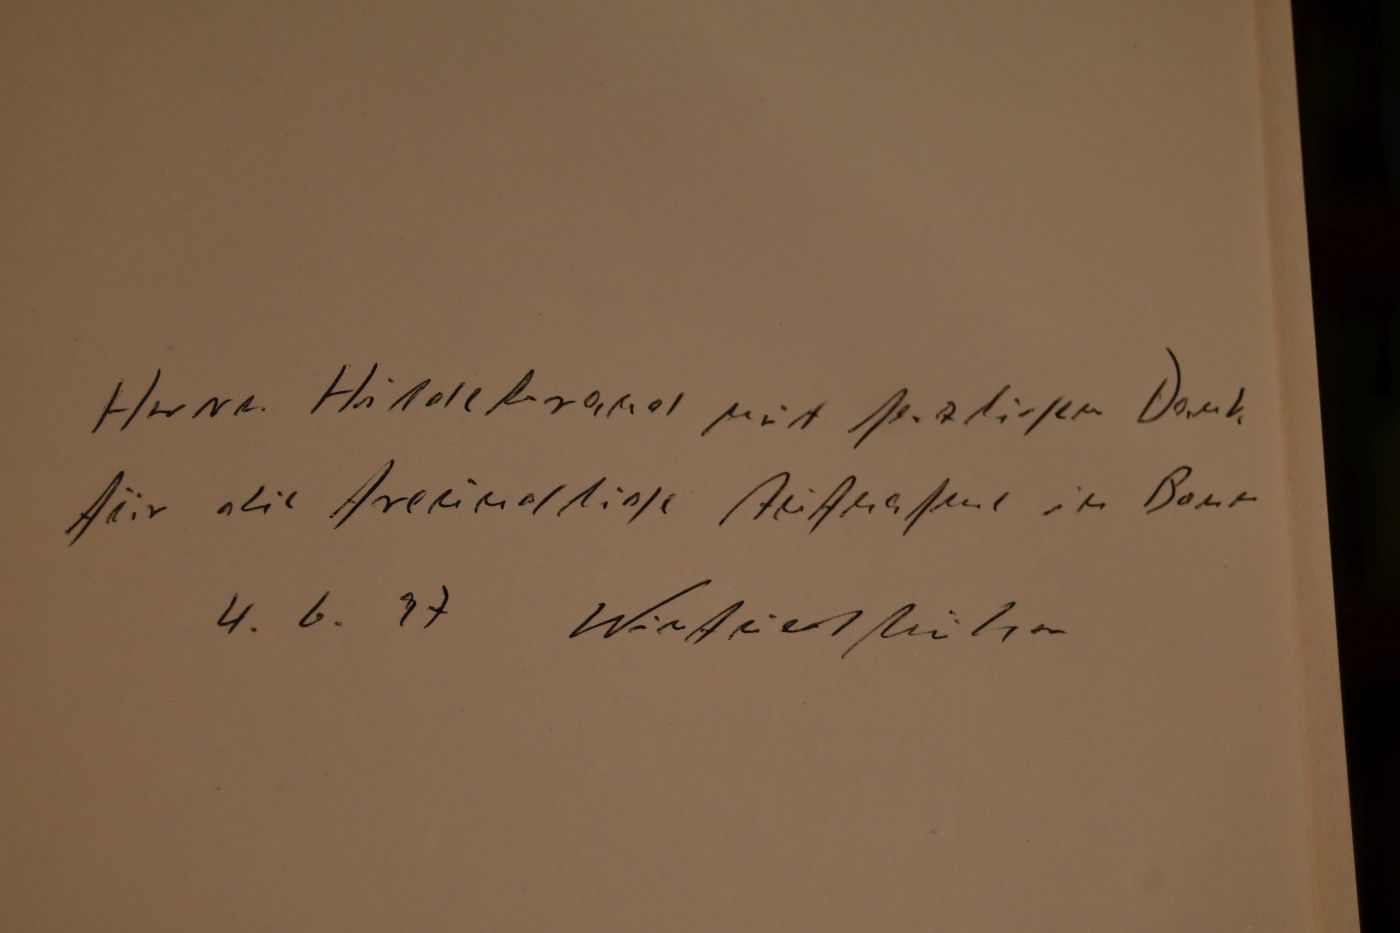 Herrn Hildebrand mit herzlichem Dank
für die freundliche Aufnahme in Bonn
4. 6. 97 Winfried